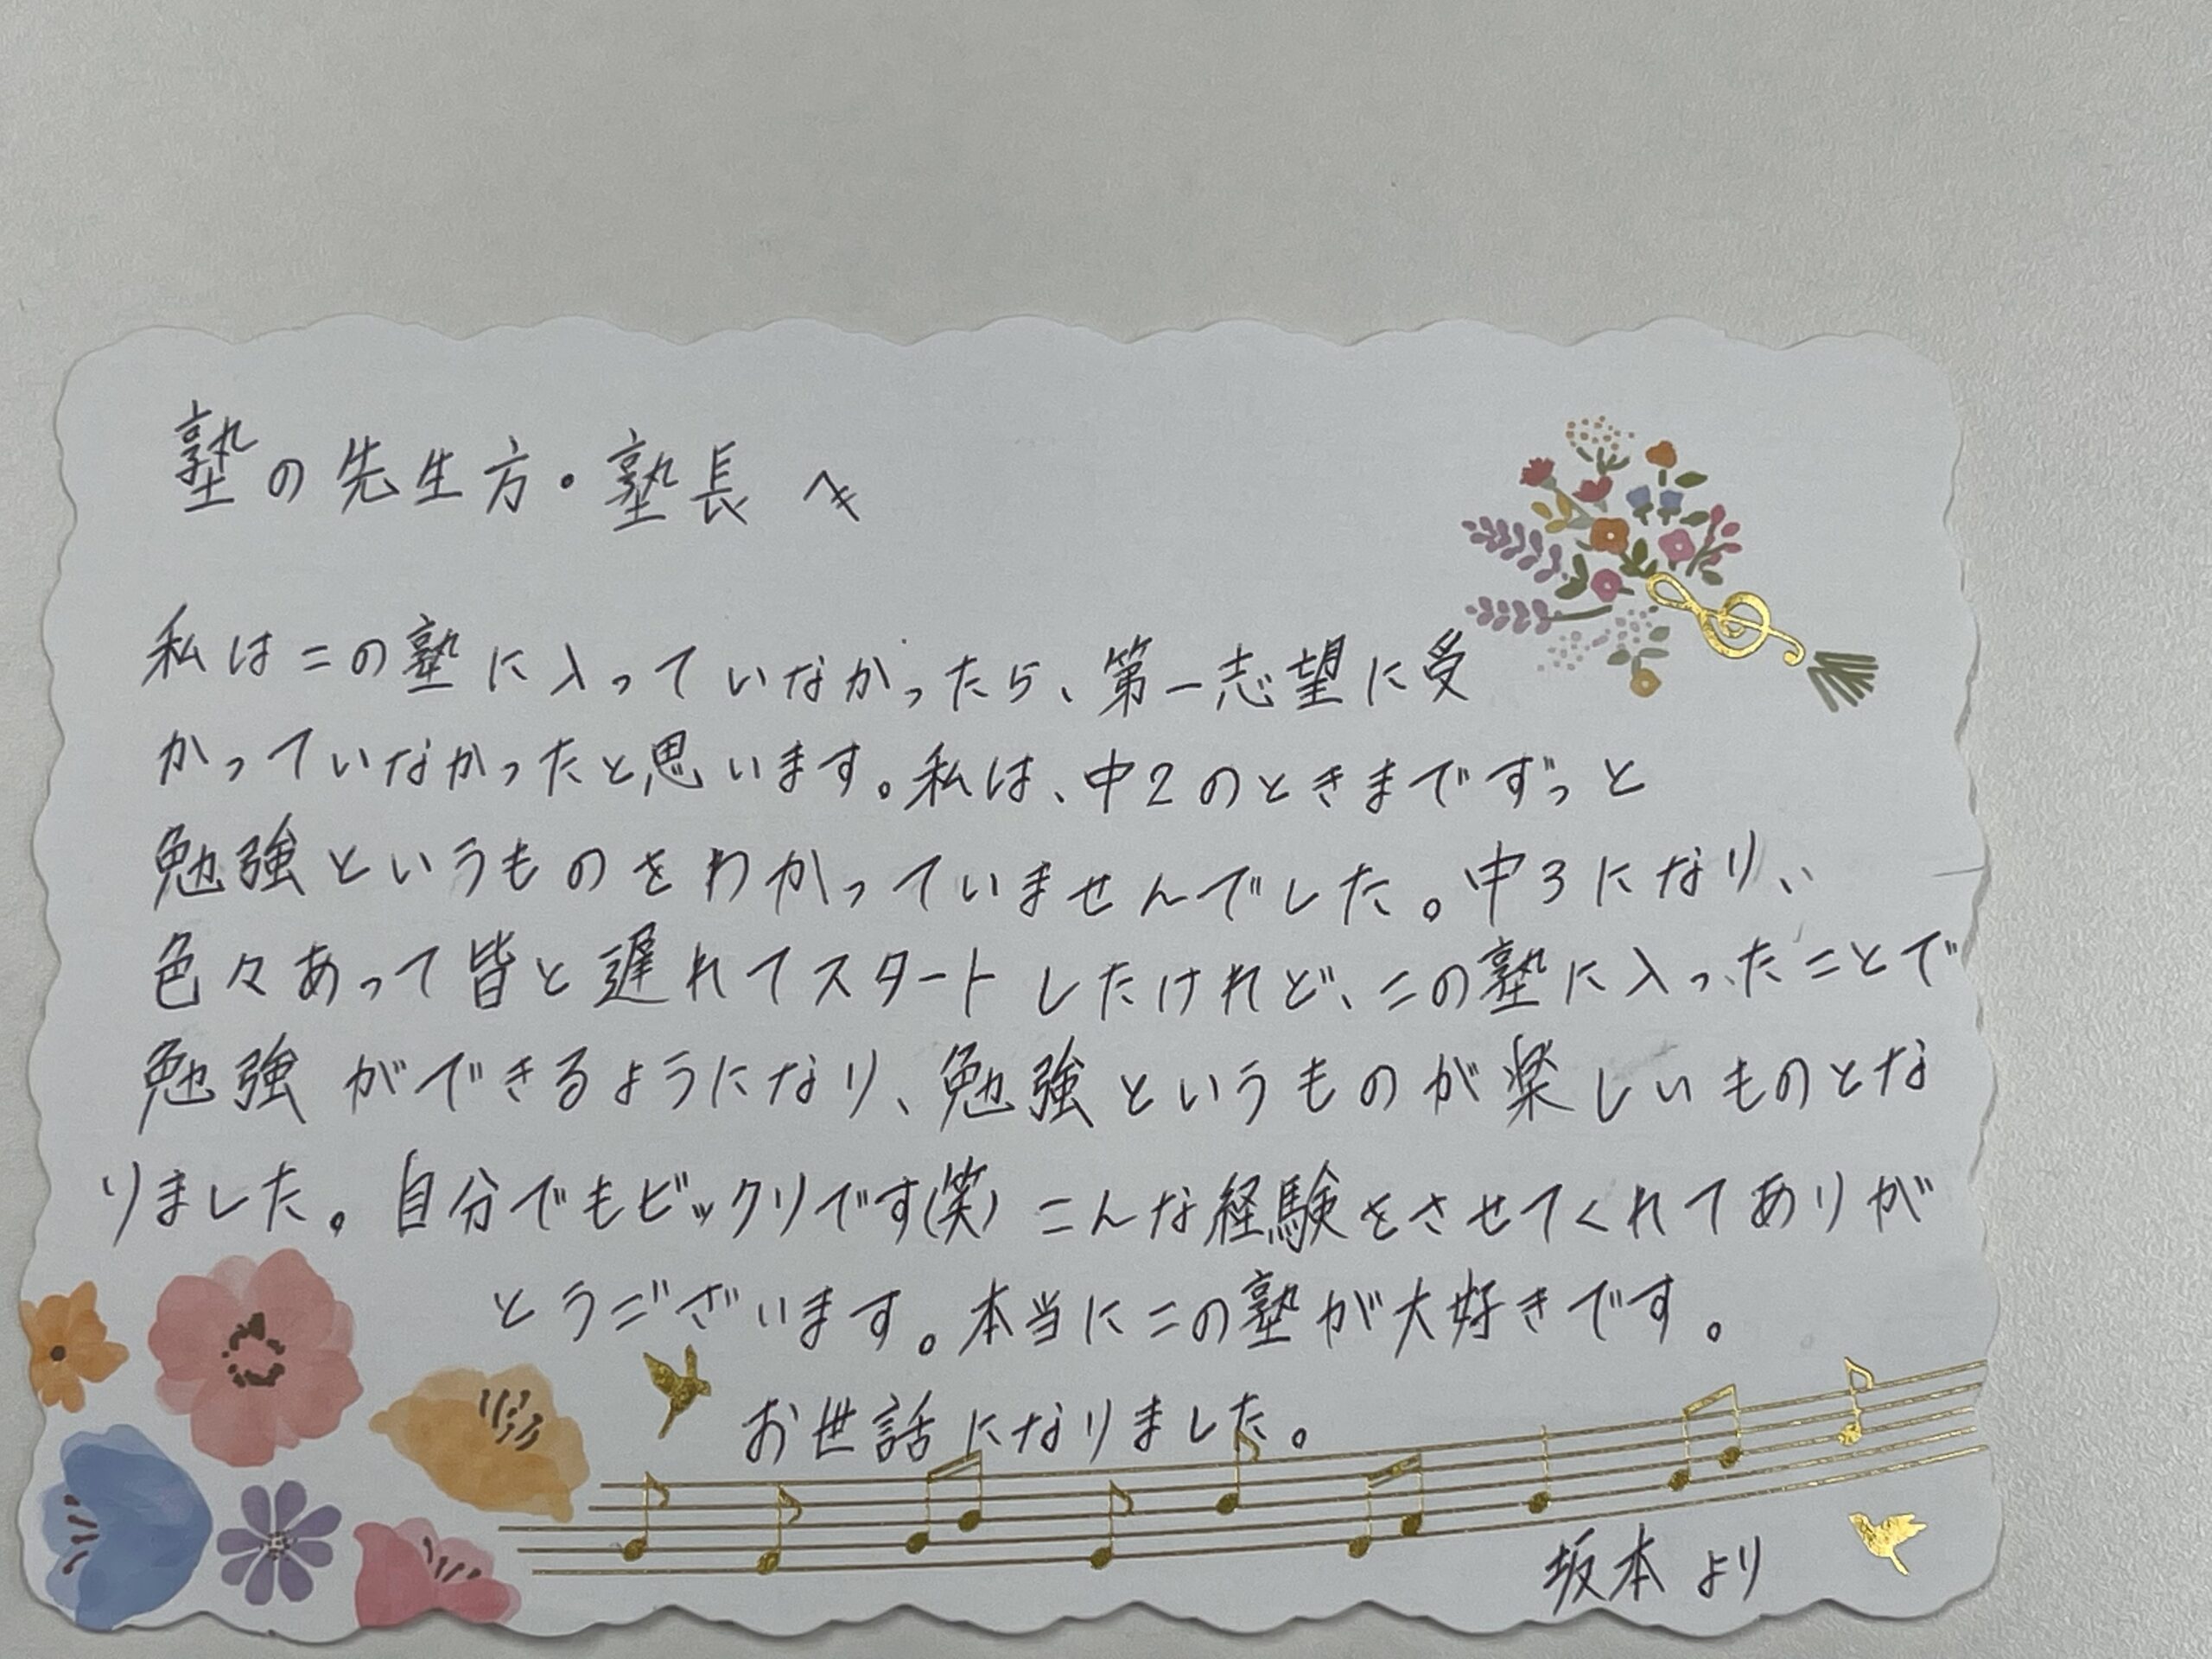 塾の先生方・塾長 へ
私はこの塾に入っていなかったら、第一志望に受
かっていなかったと思います。私は、中2のときまでずっと
勉強というものをわかっていませんでした。中3になり、
色々あって皆と遅れてスタートしたけれど、この塾に入ったことで
勉強ができるようになり、勉強というものが楽しいものとな
りました。自分でもビックリです(笑) こんな経験をさせてくれてありが
とうございます。本当にこの塾が大好きです。
お世話になりました。
坂本 より